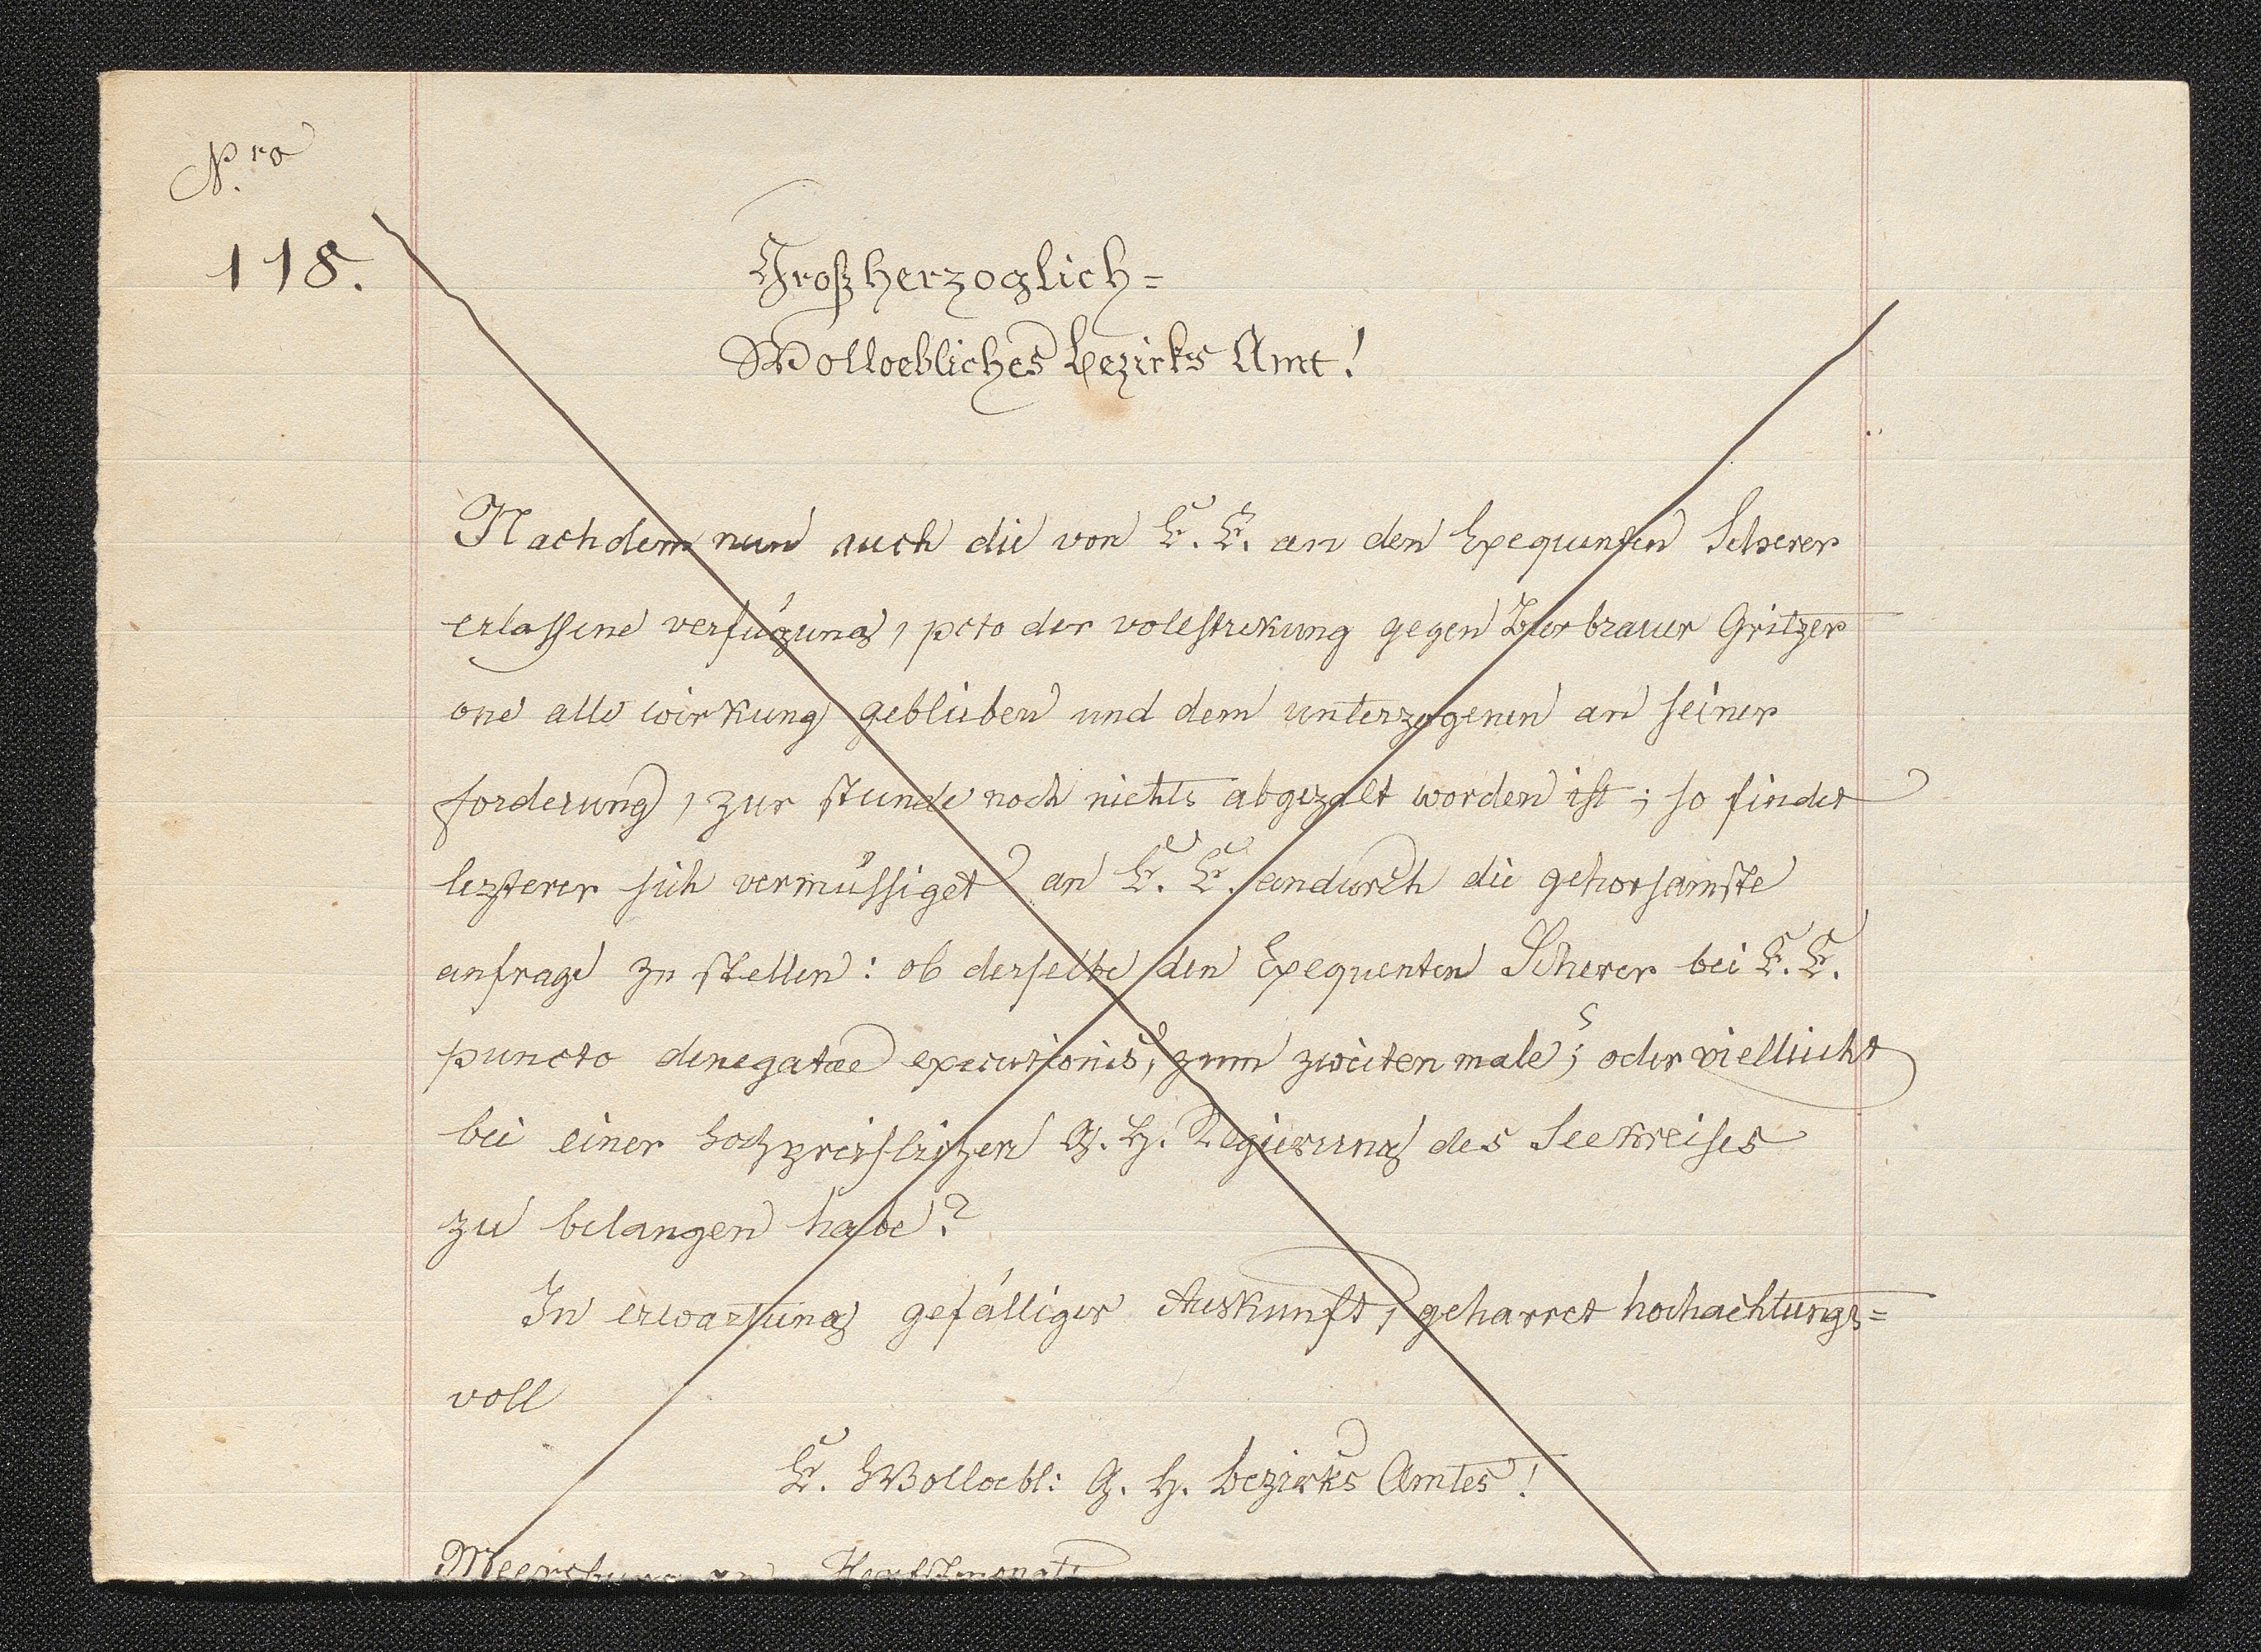 N.ro
118.
Großherzoglich=
Wolloebliches bezirks Amt!
Nachdem nun auch die von E. E. an den Exequenten Scherer
erlassene verfügung, pcto der vollstrekung gegen Bierbrauer Gritzer
one alle wirkung geblieben und dem unterzogenen an seiner
forderung, zur stunde noch nichts abgezalt worden ist; so findet
lezterer sich vermüssiget an E. E. andurch die gehorsamste
anfrage zu stellen: ob derselbe den Exequenten Scherer bei E. E.
puncto denegatae executionis, zum zweiten male; oder vielleicht
bei einer hochpreislichen G. H. Regierung des Seekreises
zu belangen habe?
In erwartung gefälliger Auskunft, geharret hochachtungs=
voll
E. Wolloebl: G. H. bezirks Amtes!
Meersburg Herbstmonats